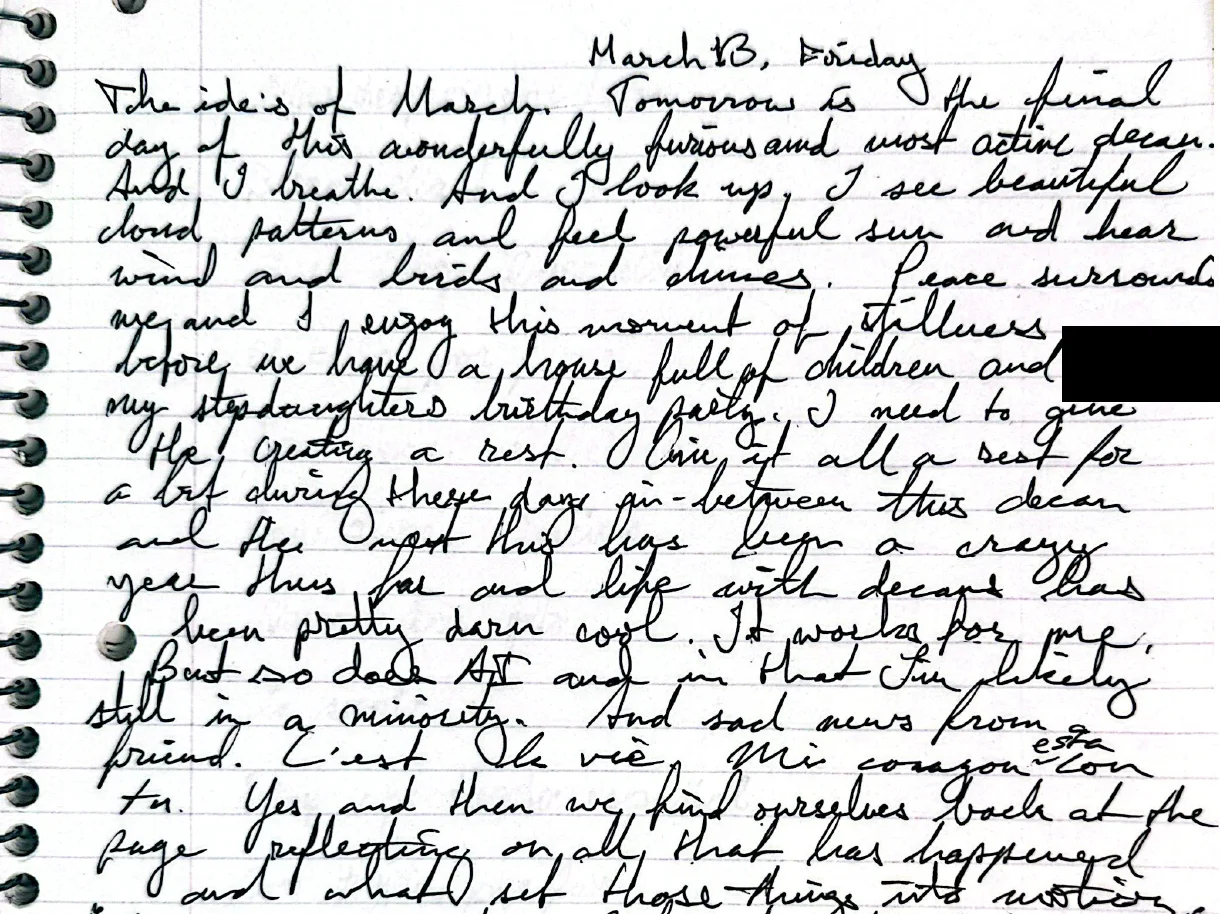 March 13, Friday
The ide's of March. Tomorrow is the final
day of this wonderfully furious and most active decan.
And I breathe. And I look up. I see beautiful
cloud patterns and feel powerful sun and hear
wind and birds and chimes. Peace surrounds
me and I enjoy this moment of stillness
before we have a house full of children and
my stepdaughters birthday party. I need to give
the creating a rest. Give it all a rest for
a bit during these days in-between this decan
and the next this has been a crazy
year thus far and life with decans has
been pretty darn cool. It works for me.
But so does AI and in that I'm likely
still in a minority. And sad news from a
friend. C'est la vie. Mi corazon esta con
tu. Yes and then we find ourselves back at the
page reflecting on all that has happened
and what set those things into motion